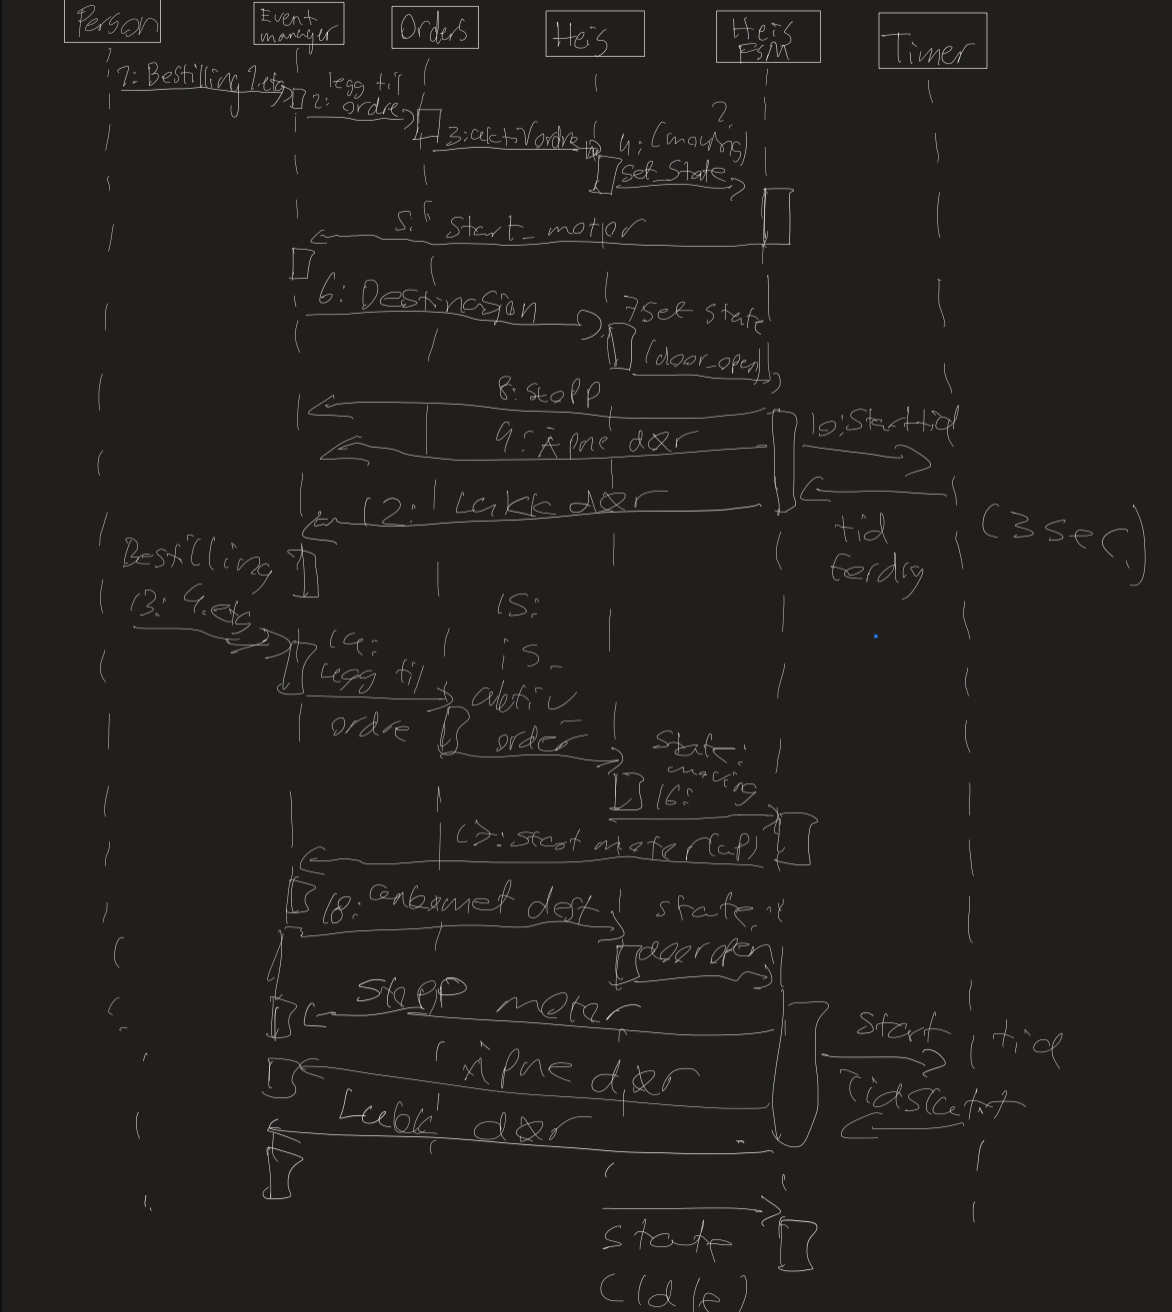 Person
Event manager
Orders
Heis
Heis FSM
Timer
1: Bestilling 2.etg
2: legg til ordre
3: aktiv ordre
?
4: (moving)
set_state
5: start_motor
6: Destinasjon
7 set state
(door_open)
8: stopp
9: Åpne dør
10: Start tid
12: Lukk dør
tid ferdig
(3 sec)
Bestilling
13: 4.etg
14: legg til ordre
15: is_aktiv_order
state: moving
16:
17: start motor (up)
18: ankommet dest.
state:
door open
Stopp motor
start tid
Åpne dør
Tid slutt
Lukk dør
state
(Idle)